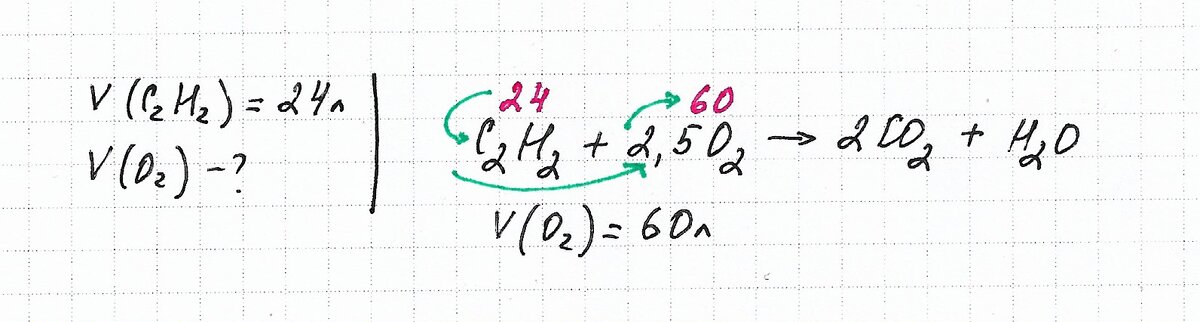 V(C₂H₂) = 24л
V(O₂) - ?
24 60
C₂H₂ + 2,5O₂ → 2CO₂ + H₂O
V(O₂) = 60л